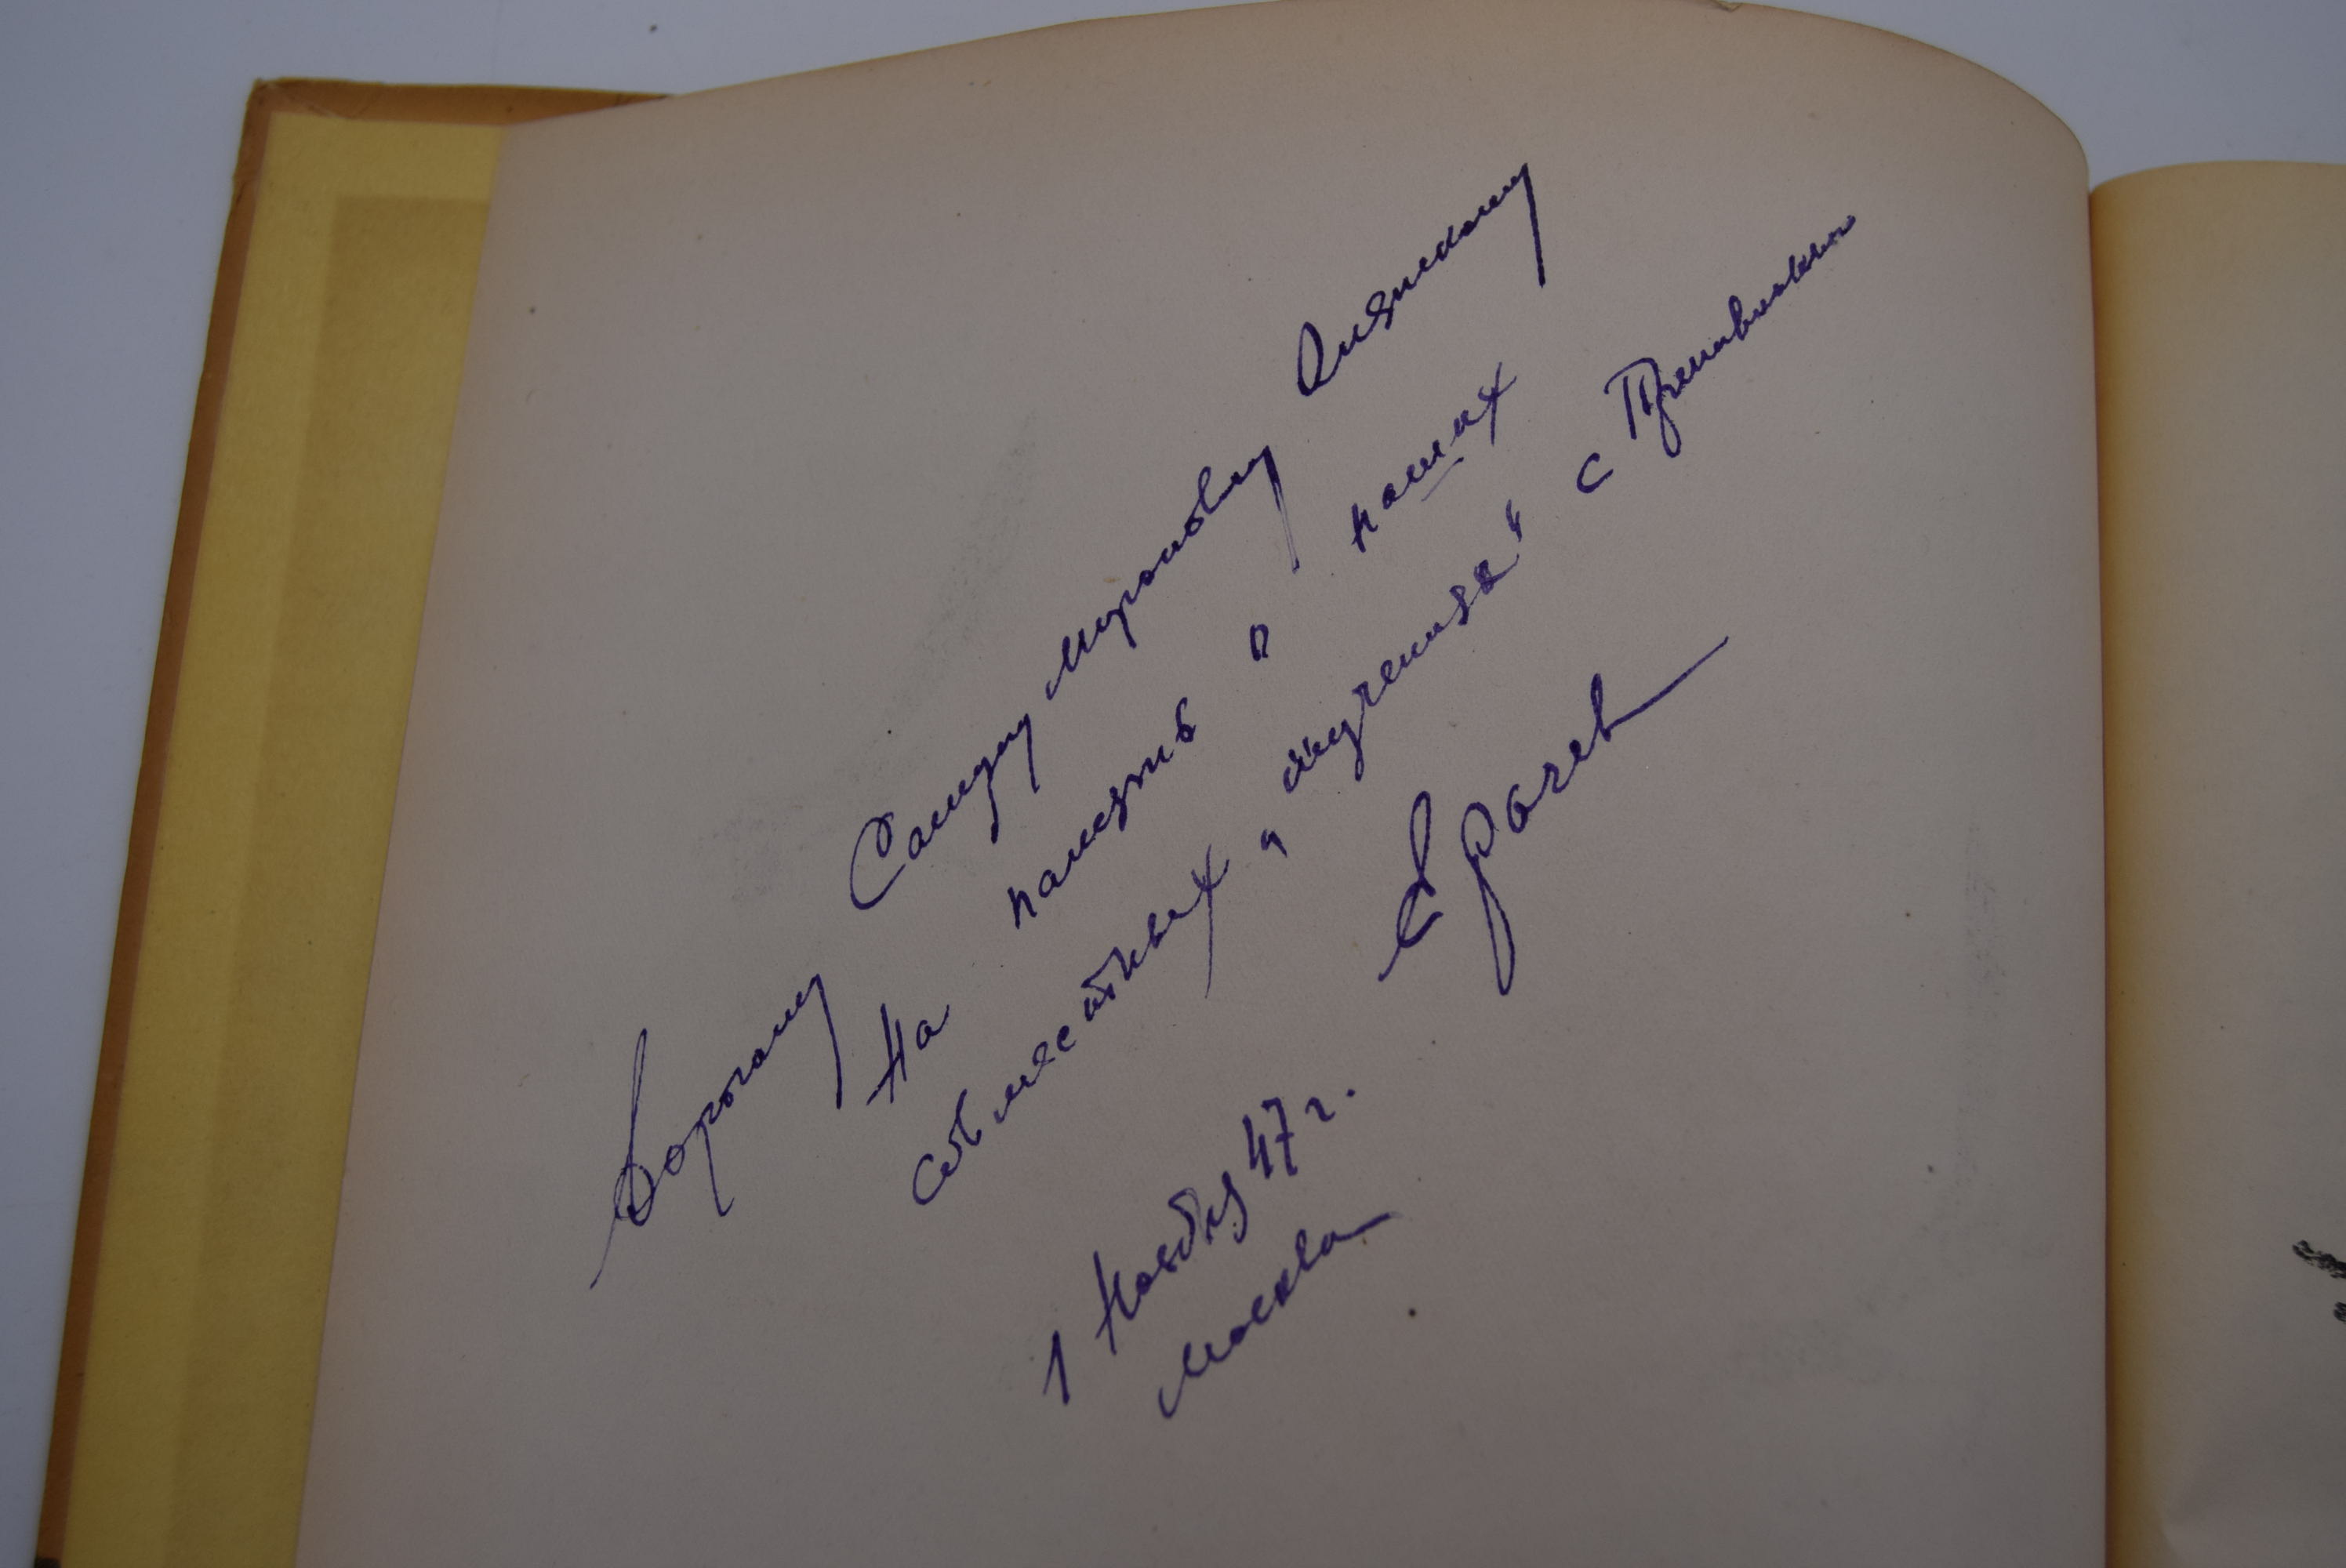 Дорогому Самуилу Мироновичу Алянскому
На память о наших
совместных „мучениях“ с Пришвиным
Е Рачев
1 Ноября 47 г.
Москва